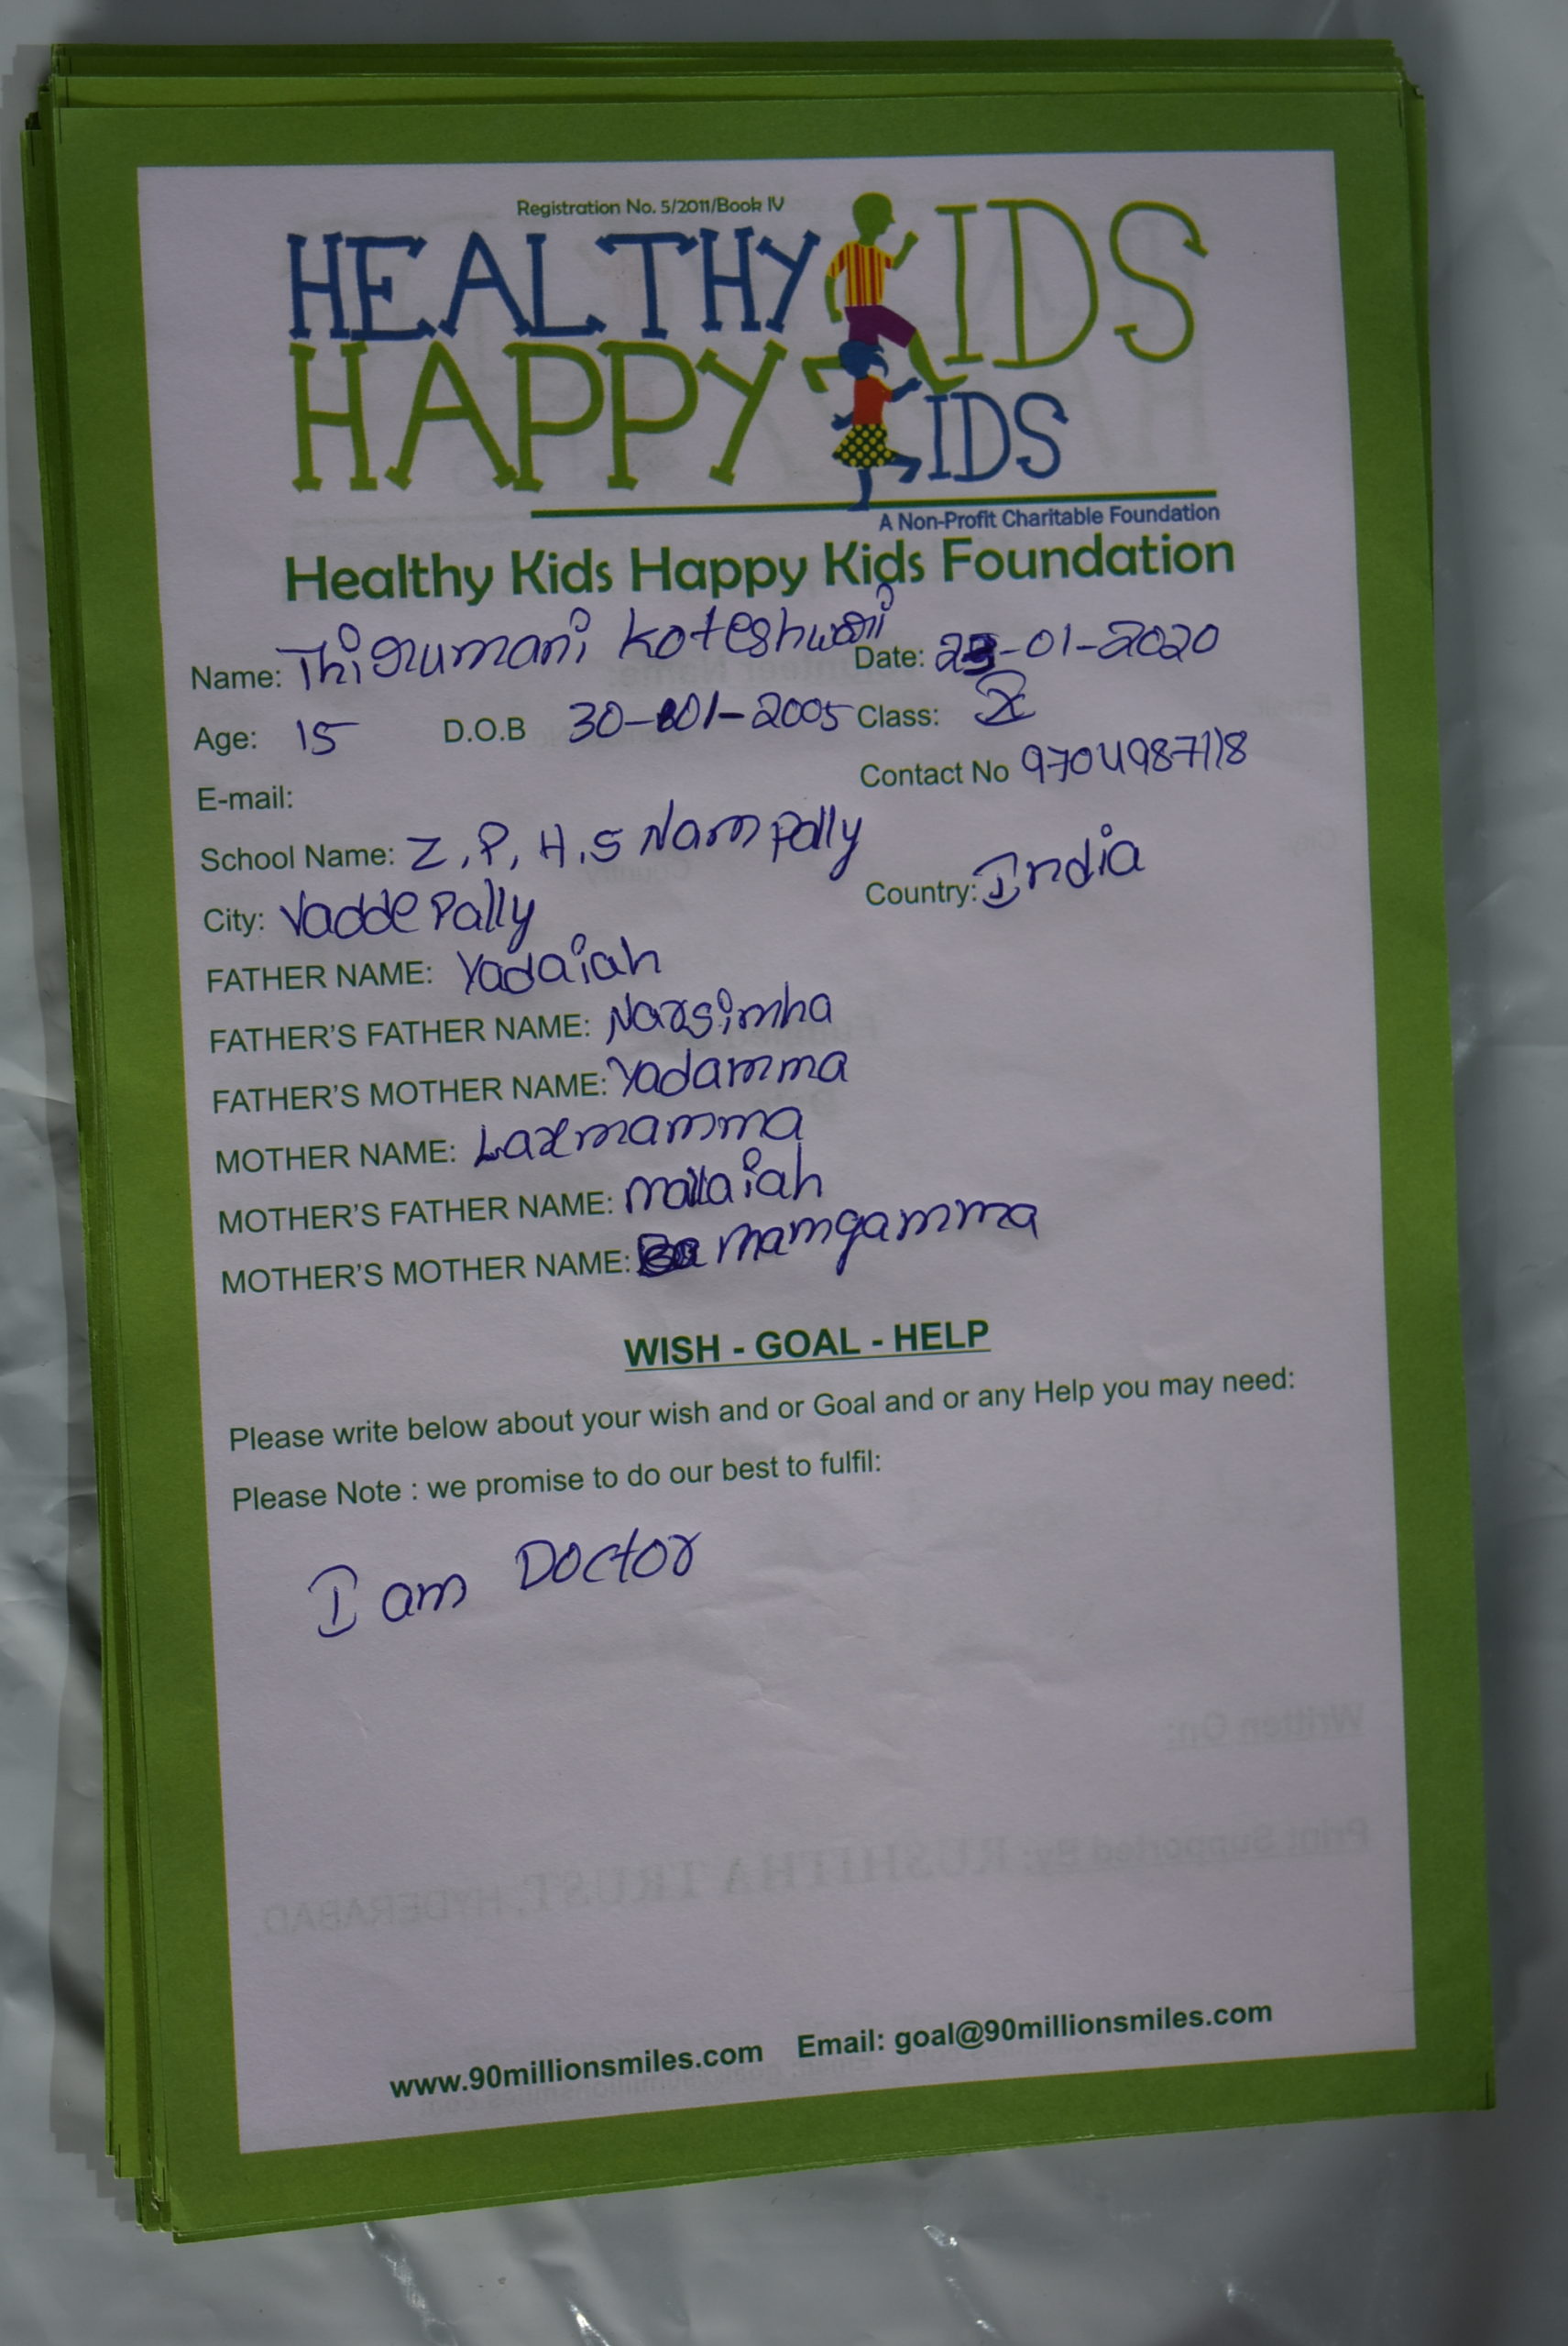 Registration No. 5/2011/Book IV
HEALTHY KIDS
HAPPY KIDS
A Non-Profit Charitable Foundation
Healthy Kids Happy Kids Foundation
Name: Thirumani Koteshwari Date: 23-01-2020
Age: 15 D.O.B 30-01-2005 Class: X
E-mail: Contact No 9704987118
School Name: Z.P.H.S Nampally
City: Vaddepally Country: India
FATHER NAME: Yadaiah
FATHER'S FATHER NAME: Narsimha
FATHER'S MOTHER NAME: Yadamma
MOTHER NAME: Laxmamma
MOTHER'S FATHER NAME: mallaiah
MOTHER'S MOTHER NAME: mamgamma
WISH - GOAL - HELP
Please write below about your wish and or Goal and or any Help you may need:
Please Note : we promise to do our best to fulfil:
I am Doctor
Written On:
Print Supported By: RUSHITHA TRUST, HYDERABAD.
www.90millionsmiles.com Email: goal@90millionsmiles.com